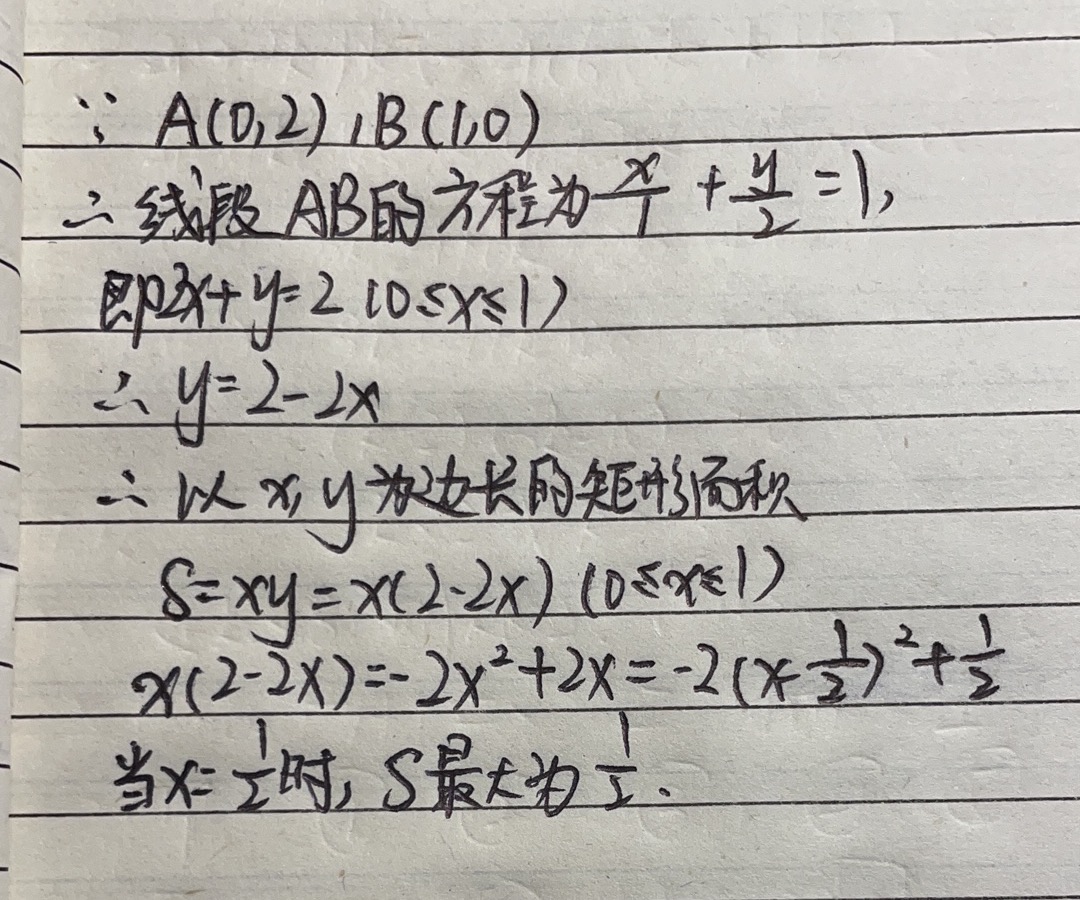 ∵ A(0,2),B(1,0)
∴ 线段AB的方程为x/1 + y/2 = 1,
即2x+y=2 (0≤x≤1)
∴ y=2-2x
∴ 以x,y为边长的矩形面积
S=xy=x(2-2x) (0≤x≤1)
x(2-2x)=-2x²+2x=-2(x-1/2)²+1/2
当x=1/2时, S最大为1/2.